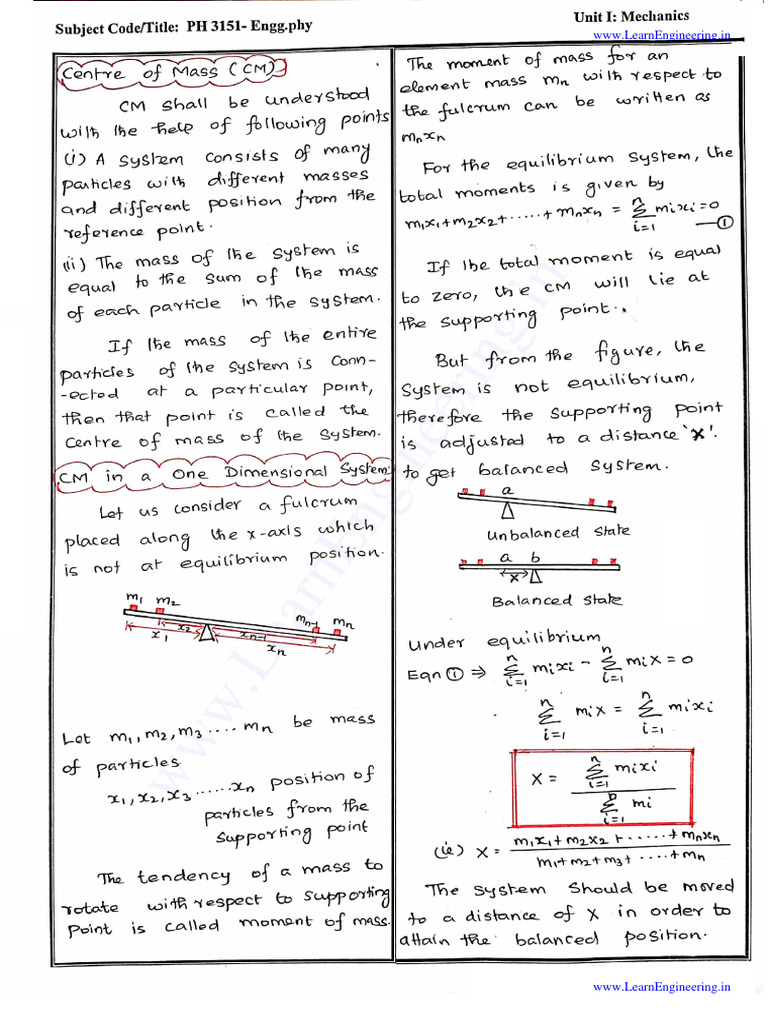 Subject Code/Title: PH 3151- Engg.phy
Unit I: Mechanics
www.LearnEngineering.in
Centre of Mass (CM)
CM shall be understood
with the help of following points
(i) A system consists of many
particles with different masses
and different position from the
reference point.
(ii) The mass of the system is
equal to the sum of the mass
of each particle in the system.
If the mass of the entire
particles of the system is Conn-
-ected at a particular point,
then that point is called the
Centre of mass of the System.
CM in a One Dimensional System:
Let us consider a fulcrum
placed along the x-axis which
is not at equilibrium position.
m₁ m₂ mₙ₋₁ mₙ
x₁ x₂ xₙ₋₁
xₙ
Let m₁, m₂, m₃ .... mₙ be mass
of particles.
x₁, x₂, x₃ ...... xₙ position of
particles from the
supporting point
The tendency of a mass to
rotate with respect to supporting
Point is called moment of mass.
The moment of mass for an
element mass mₙ with respect to
the fulcrum can be written as
mₙxₙ
For the equilibrium system, the
total moments is given by
m₁x₁+m₂x₂+.....+mₙxₙ = n∑i=1 mᵢxᵢ=0 —①
If the total moment is equal
to zero, the CM will lie at
the supporting point.
But from the figure, the
System is not equilibrium,
therefore the supporting point
is adjusted to a distance 'X'.
to get balanced System.
a
Unbalanced state
a b
X
Balanced State
Under equilibrium
Eqn ① ⇒ n∑i=1 mᵢxᵢ - n∑i=1 mᵢX = 0
n∑i=1 mᵢX = n∑i=1 mᵢxᵢ
X = n∑i=1 mᵢxᵢ / n∑i=1 mᵢ
(ie) X = m₁x₁+m₂x₂+......+mₙxₙ / m₁+m₂+m₃+....+mₙ
The system should be moved
to a distance of X in order to
attain the balanced position.
www.LearnEngineering.in
www.LearnEngineering.in